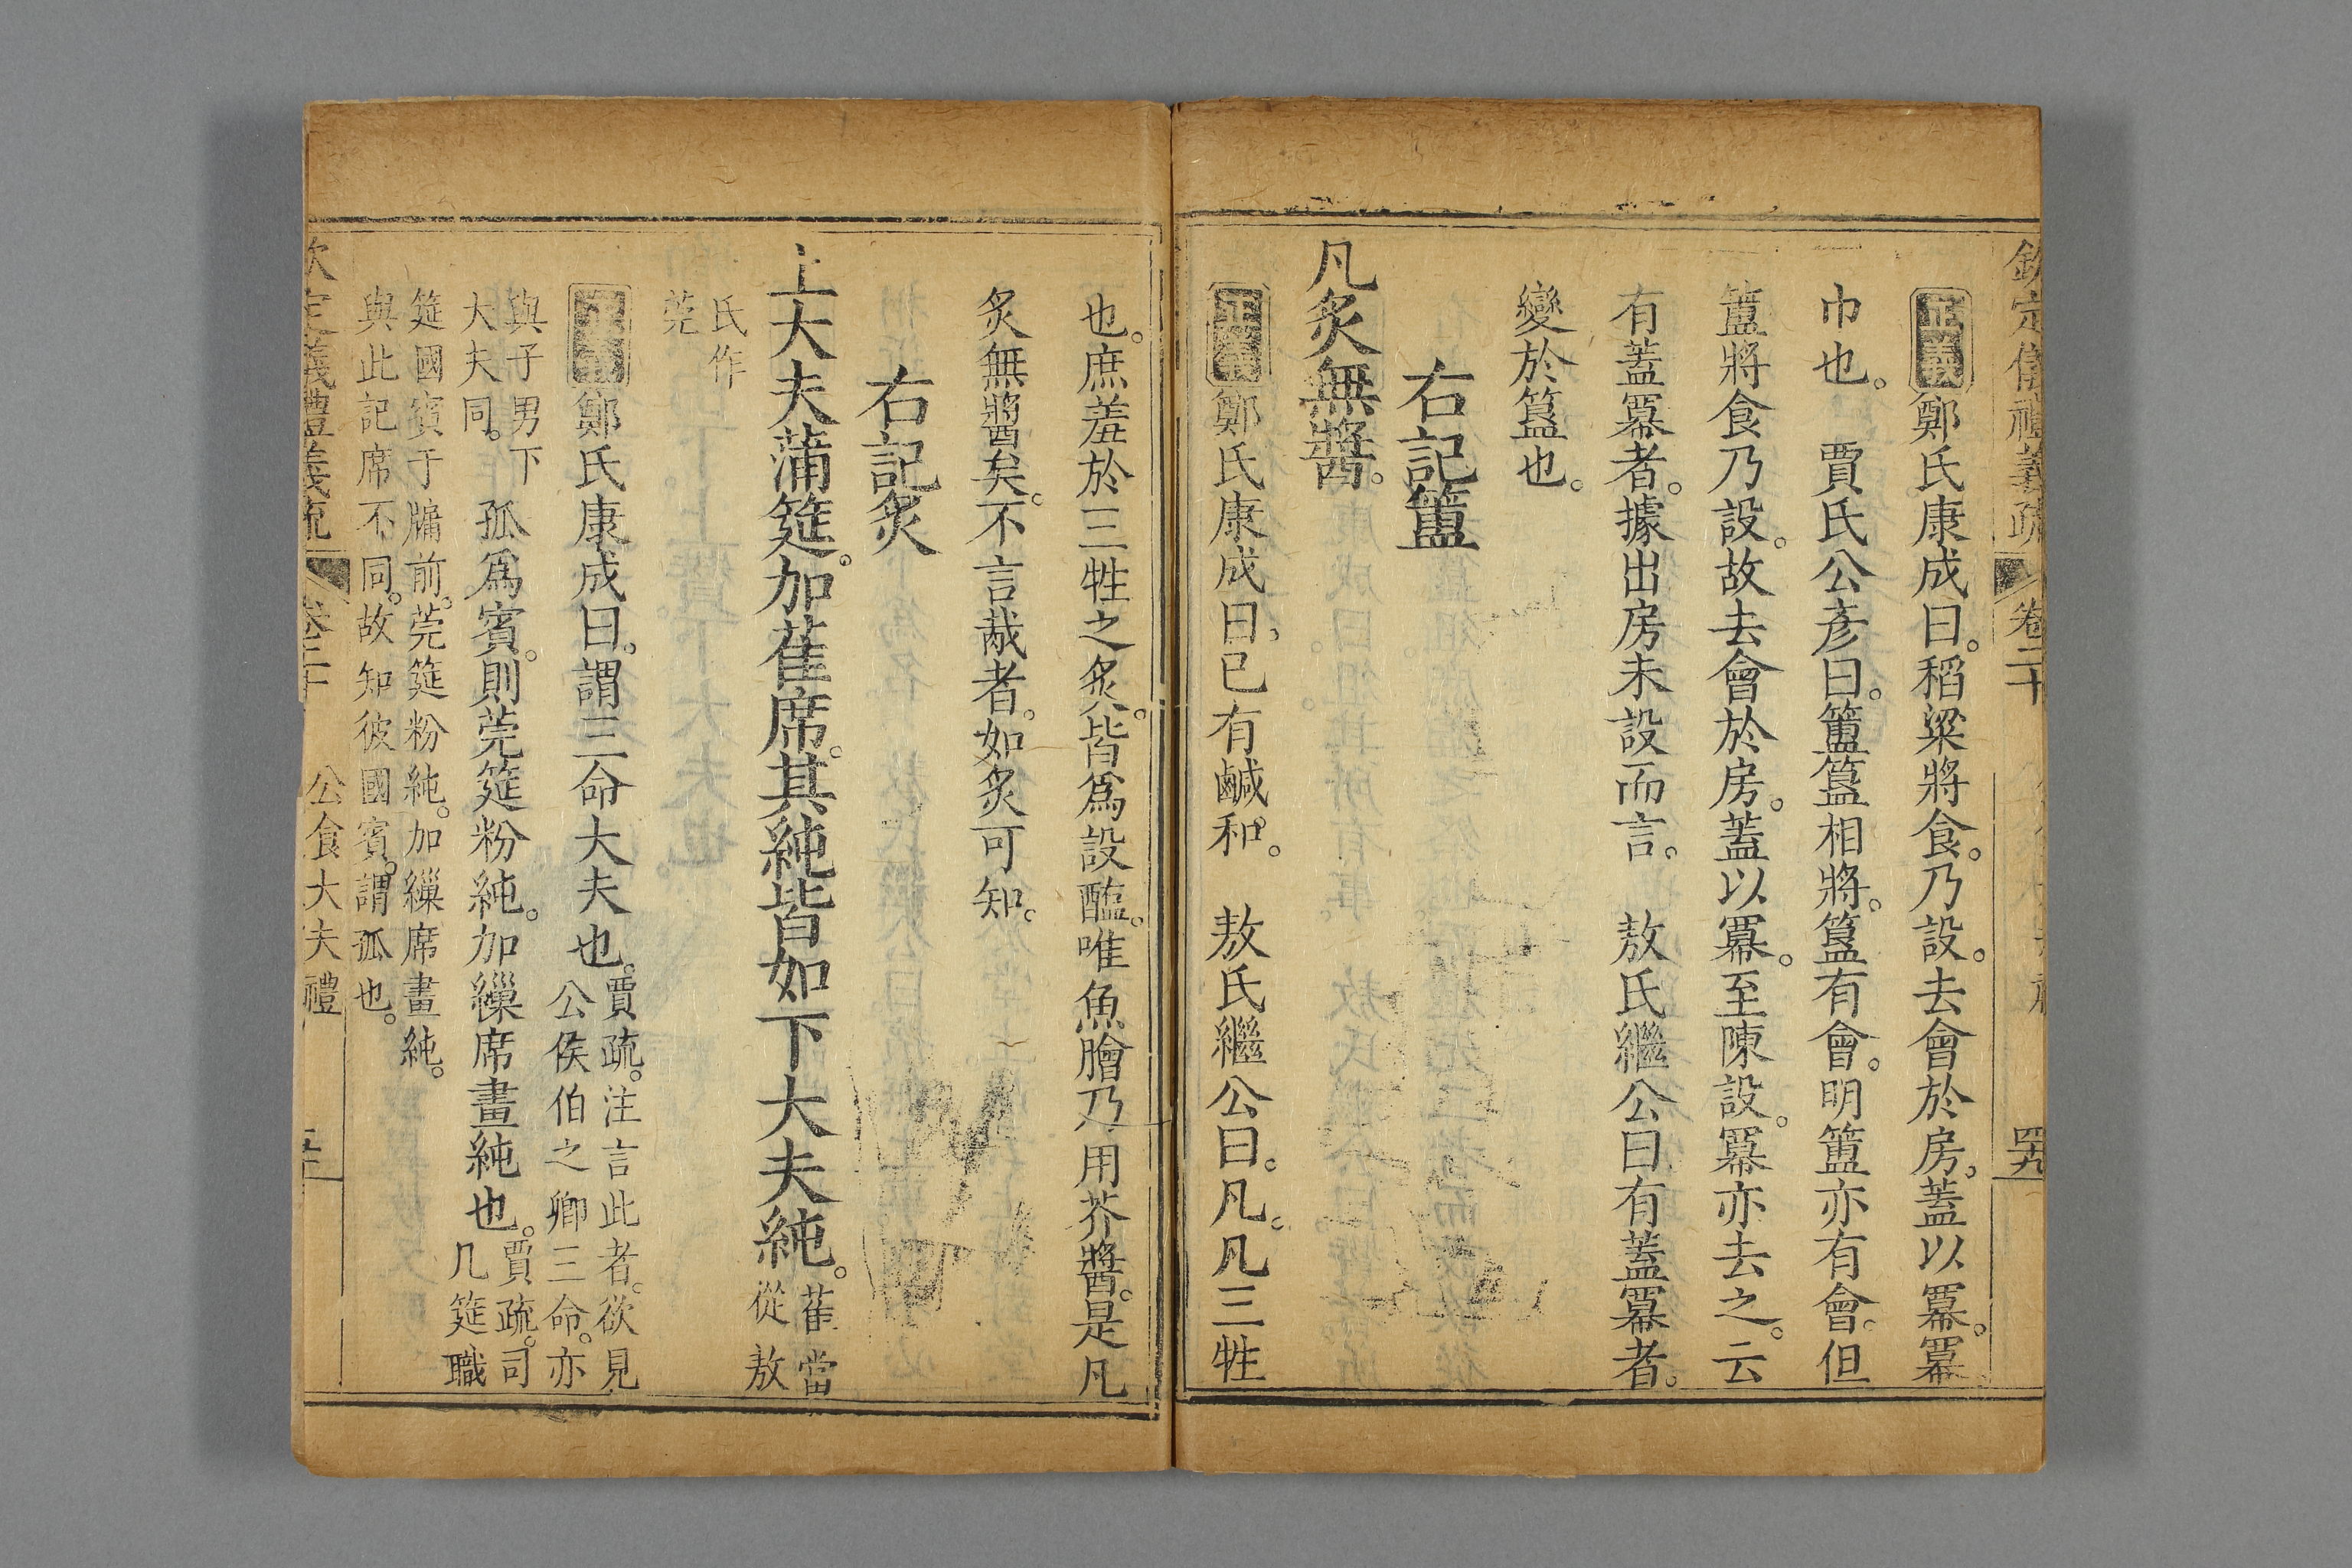 欽定儀禮義疏 卷二十 四九
正義鄭氏康成曰。稻粱將食。乃設。去會於房。蓋以冪。冪
巾也。 賈氏公彥曰。簠簋相將。簋有會。明簠亦有會。但
簠將食乃設。故去會於房。蓋以冪。至陳設。冪亦去之。云
有蓋冪者。據出房未設而言。 敖氏繼公曰有蓋冪者。
變於簋也。
右記簠
凡炙無醬。
正義鄭氏康成曰、已有鹹和。 敖氏繼公曰。凡。凡三牲
也。庶羞於三牲之炙。皆爲設醢。唯魚膾乃用芥醬。是凡
炙無醬矣。不言胾者。如炙可知。
右記炙
上大夫蒲筵。加萑席。其純皆如下大夫純。萑當
從敖
氏作
莞
正義鄭氏康成曰。謂三命大夫也。賈疏。注言此者。欲見
公侯伯之卿三命。亦
與子男下
大夫同。
孤爲賓。則莞筵粉純。加繅席畫純也。賈疏。司
几筵職
筵國賓于牖前。莞筵粉純。加繅席畫純。
與此記席不同。故知彼國賓。謂孤也。
欽定儀禮義疏 卷二十 公食大夫禮